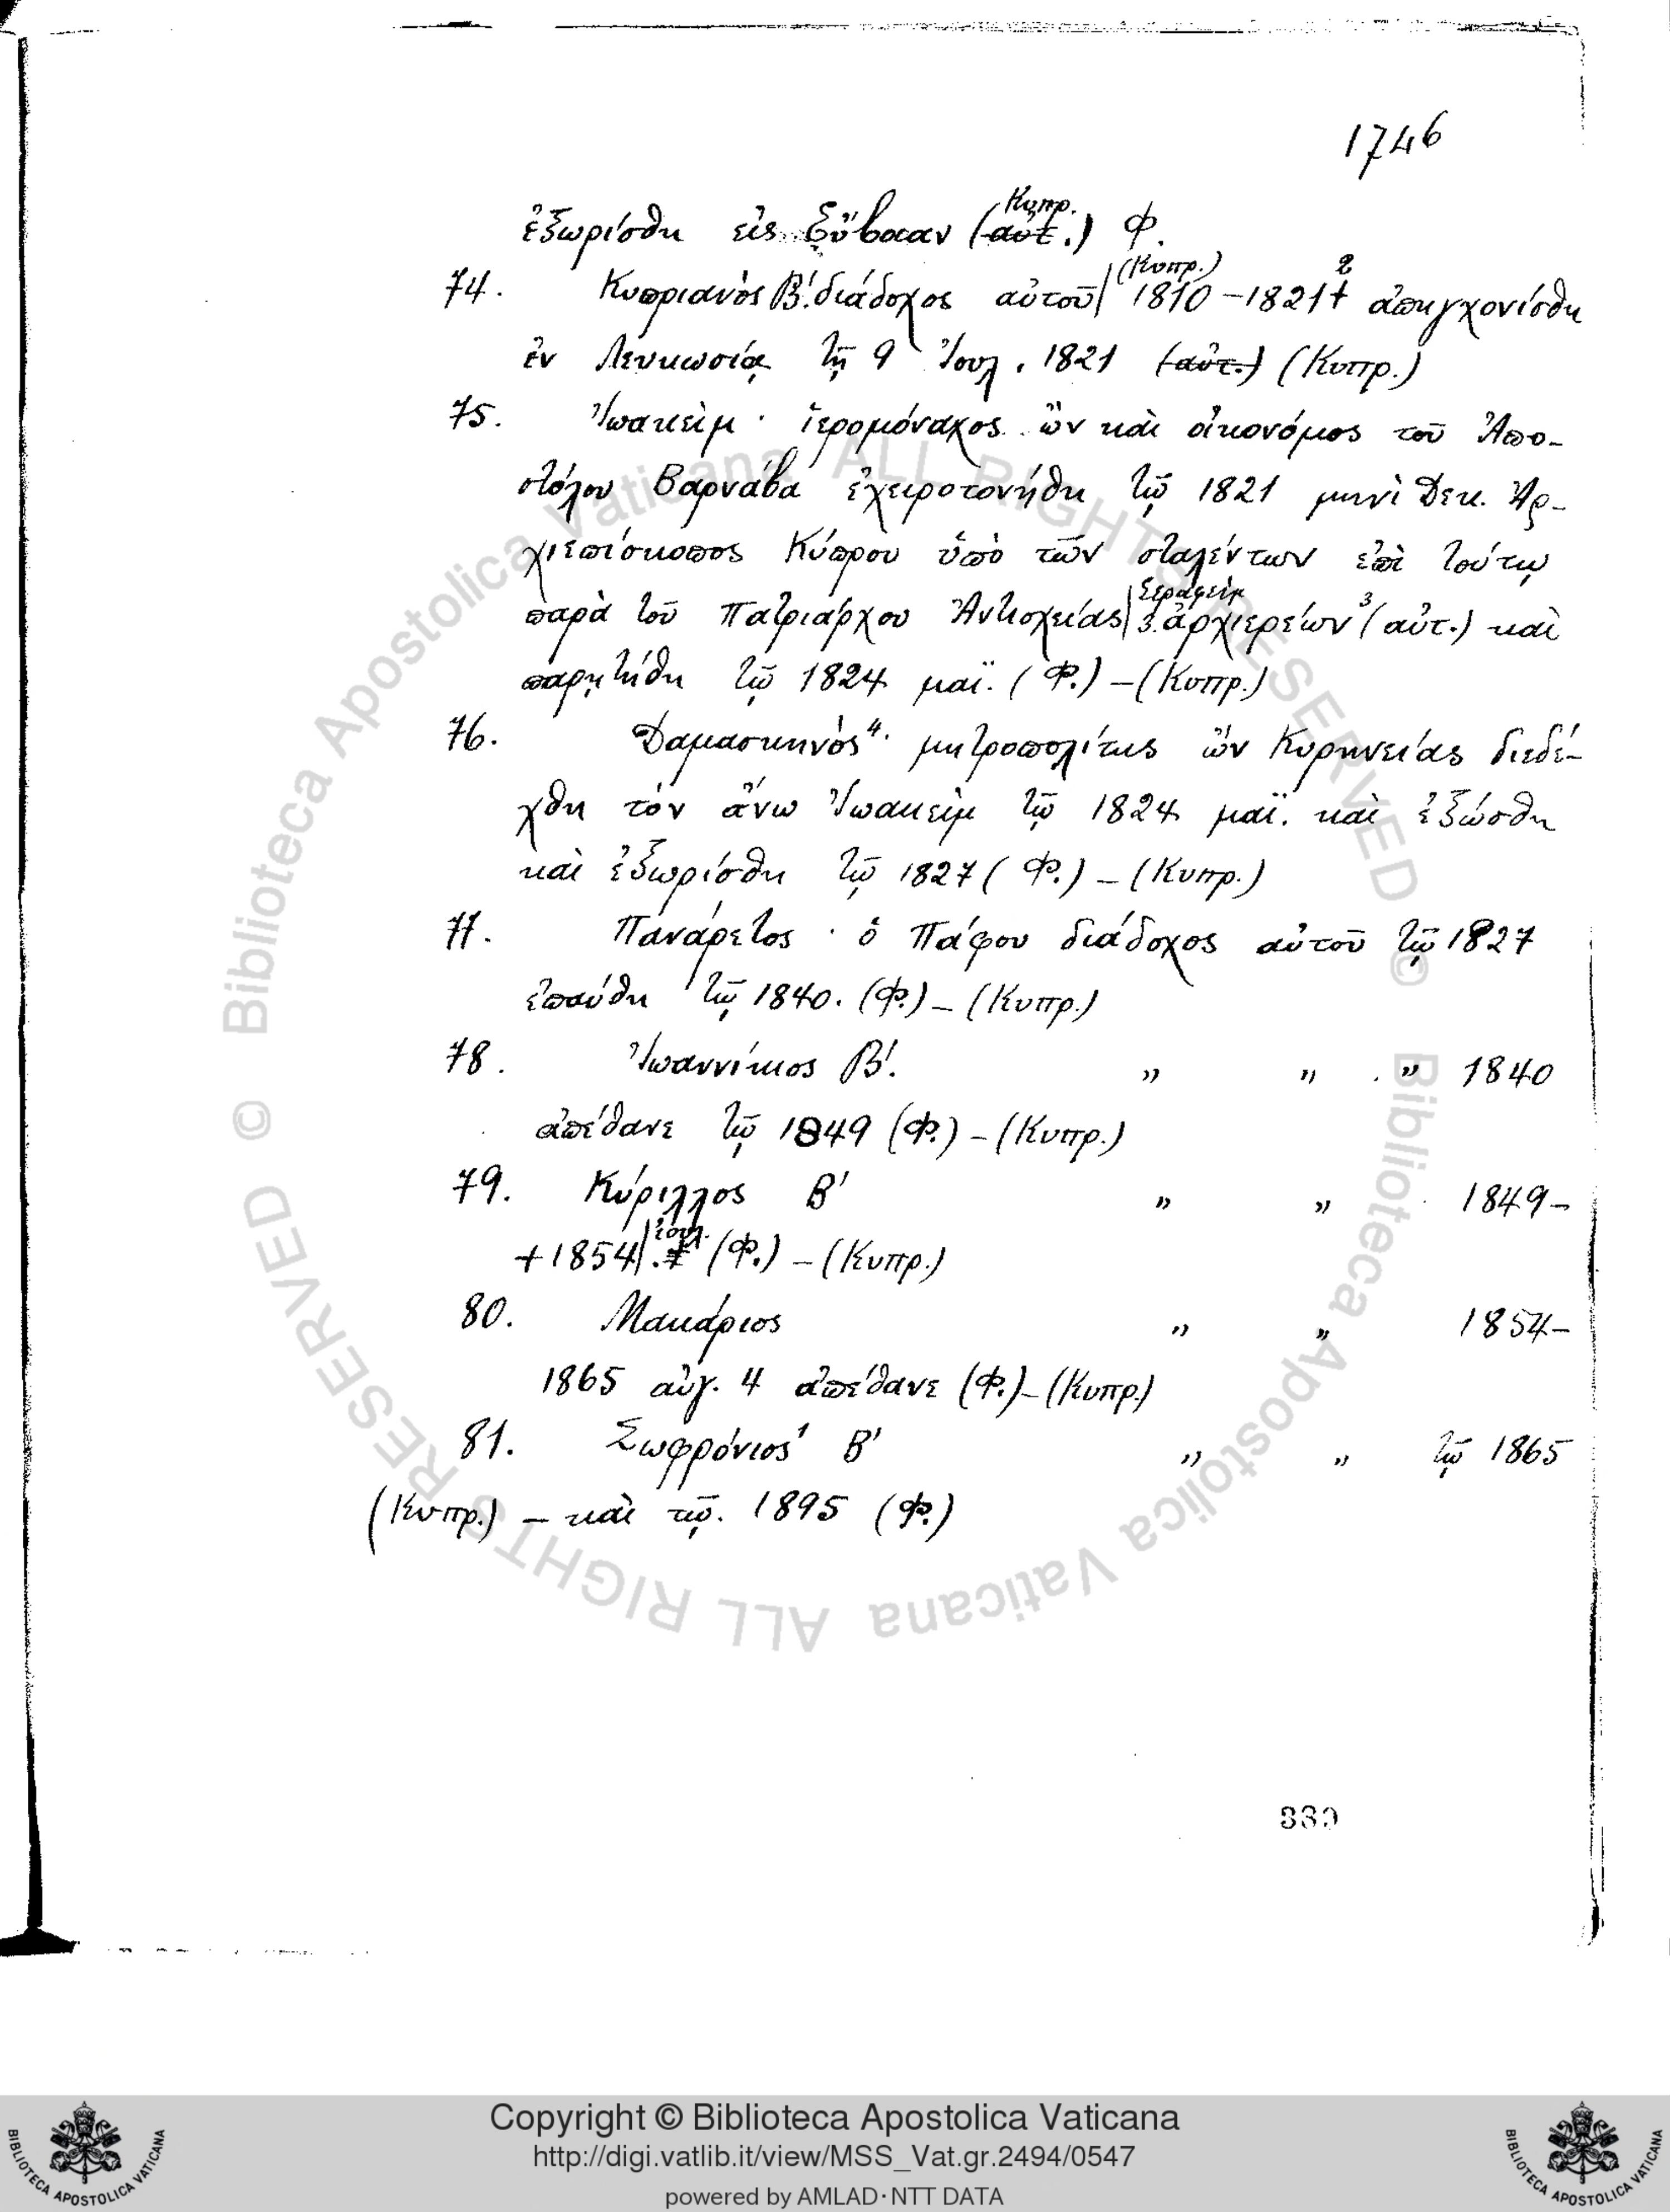 1746
ἐξωρίσθη εἰς Εὔβοιαν (αὐτ.) Κυπρ. Φ.
74. Κυπριανὸς Β´. διάδοχος αὐτοῦ (Κυπρ.) 1810-1821† 2 ἀπηγχονίσθη
ἐν Λευκωσίᾳ τῇ 9 Ἰουλ. 1821 (αὐτ.) (Κυπρ.)
75. Ἰωακεὶμ · ἱερομόναχος ὢν καὶ οἰκονόμος τοῦ Ἀπο-
στόλου Βαρνάβα ἐχειροτονήθη τῷ 1821 μηνὶ Δεκ. Ἀρ-
χιεπίσκοπος Κύπρου ὑπὸ τῶν σταλέντων ἐπὶ τούτῳ
παρὰ τοῦ Πατριάρχου Ἀντιοχείας Σεραφεὶμ 3 ἀρχιερείων 3 (αὐτ.) καὶ
παρῃτήθη τῷ 1824 μαϊ. (Φ.) - (Κυπρ.)
76. Δαμασκηνός 4 · μητροπολίτης ὢν Κυρηνείας διεδέ-
χθη τὸν ἄνω Ἰωακεὶμ τῷ 1824 μαϊ. καὶ ἐξώσθη
καὶ ἐξωρίσθη τῷ 1827 (Φ.) - (Κυπρ.)
77. Πανάρετος · ὁ Πάφου διάδοχος αὐτοῦ τῷ 1827
ἐπαύθη τῷ 1840. (Φ.) - (Κυπρ.)
78. Ἰωαννίκιος Β´. „ „ „ 1840
ἀπέθανε τῷ 1849 (Φ.) - (Κυπρ.)
79. Κύριλλος Β´ „ „ 1849-
+1854 ἰουλ. (Φ.) - (Κυπρ.)
80. Μακάριος „ „ 1854-
1865 αὐγ. 4 ἀπέθανε (Φ.) - (Κυπρ.)
81. Σωφρόνιος 1 Β´ „ „ τῷ 1865
(Κυπρ.) - καὶ τῷ. 1895 (Φ.)
© Biblioteca Apostolica Vaticana ALL RIGHTS RESERVED © Biblioteca Apostolica Vaticana ALL RIGHTS RESERVED
Copyright © Biblioteca Apostolica Vaticana
http://digi.vatlib.it/view/MSS_Vat.gr.2494/0547
powered by AMLAD·NTT DATA
BIBLIOTECA APOSTOLICA VATICANA
BIBLIOTECA APOSTOLICA VATICANA